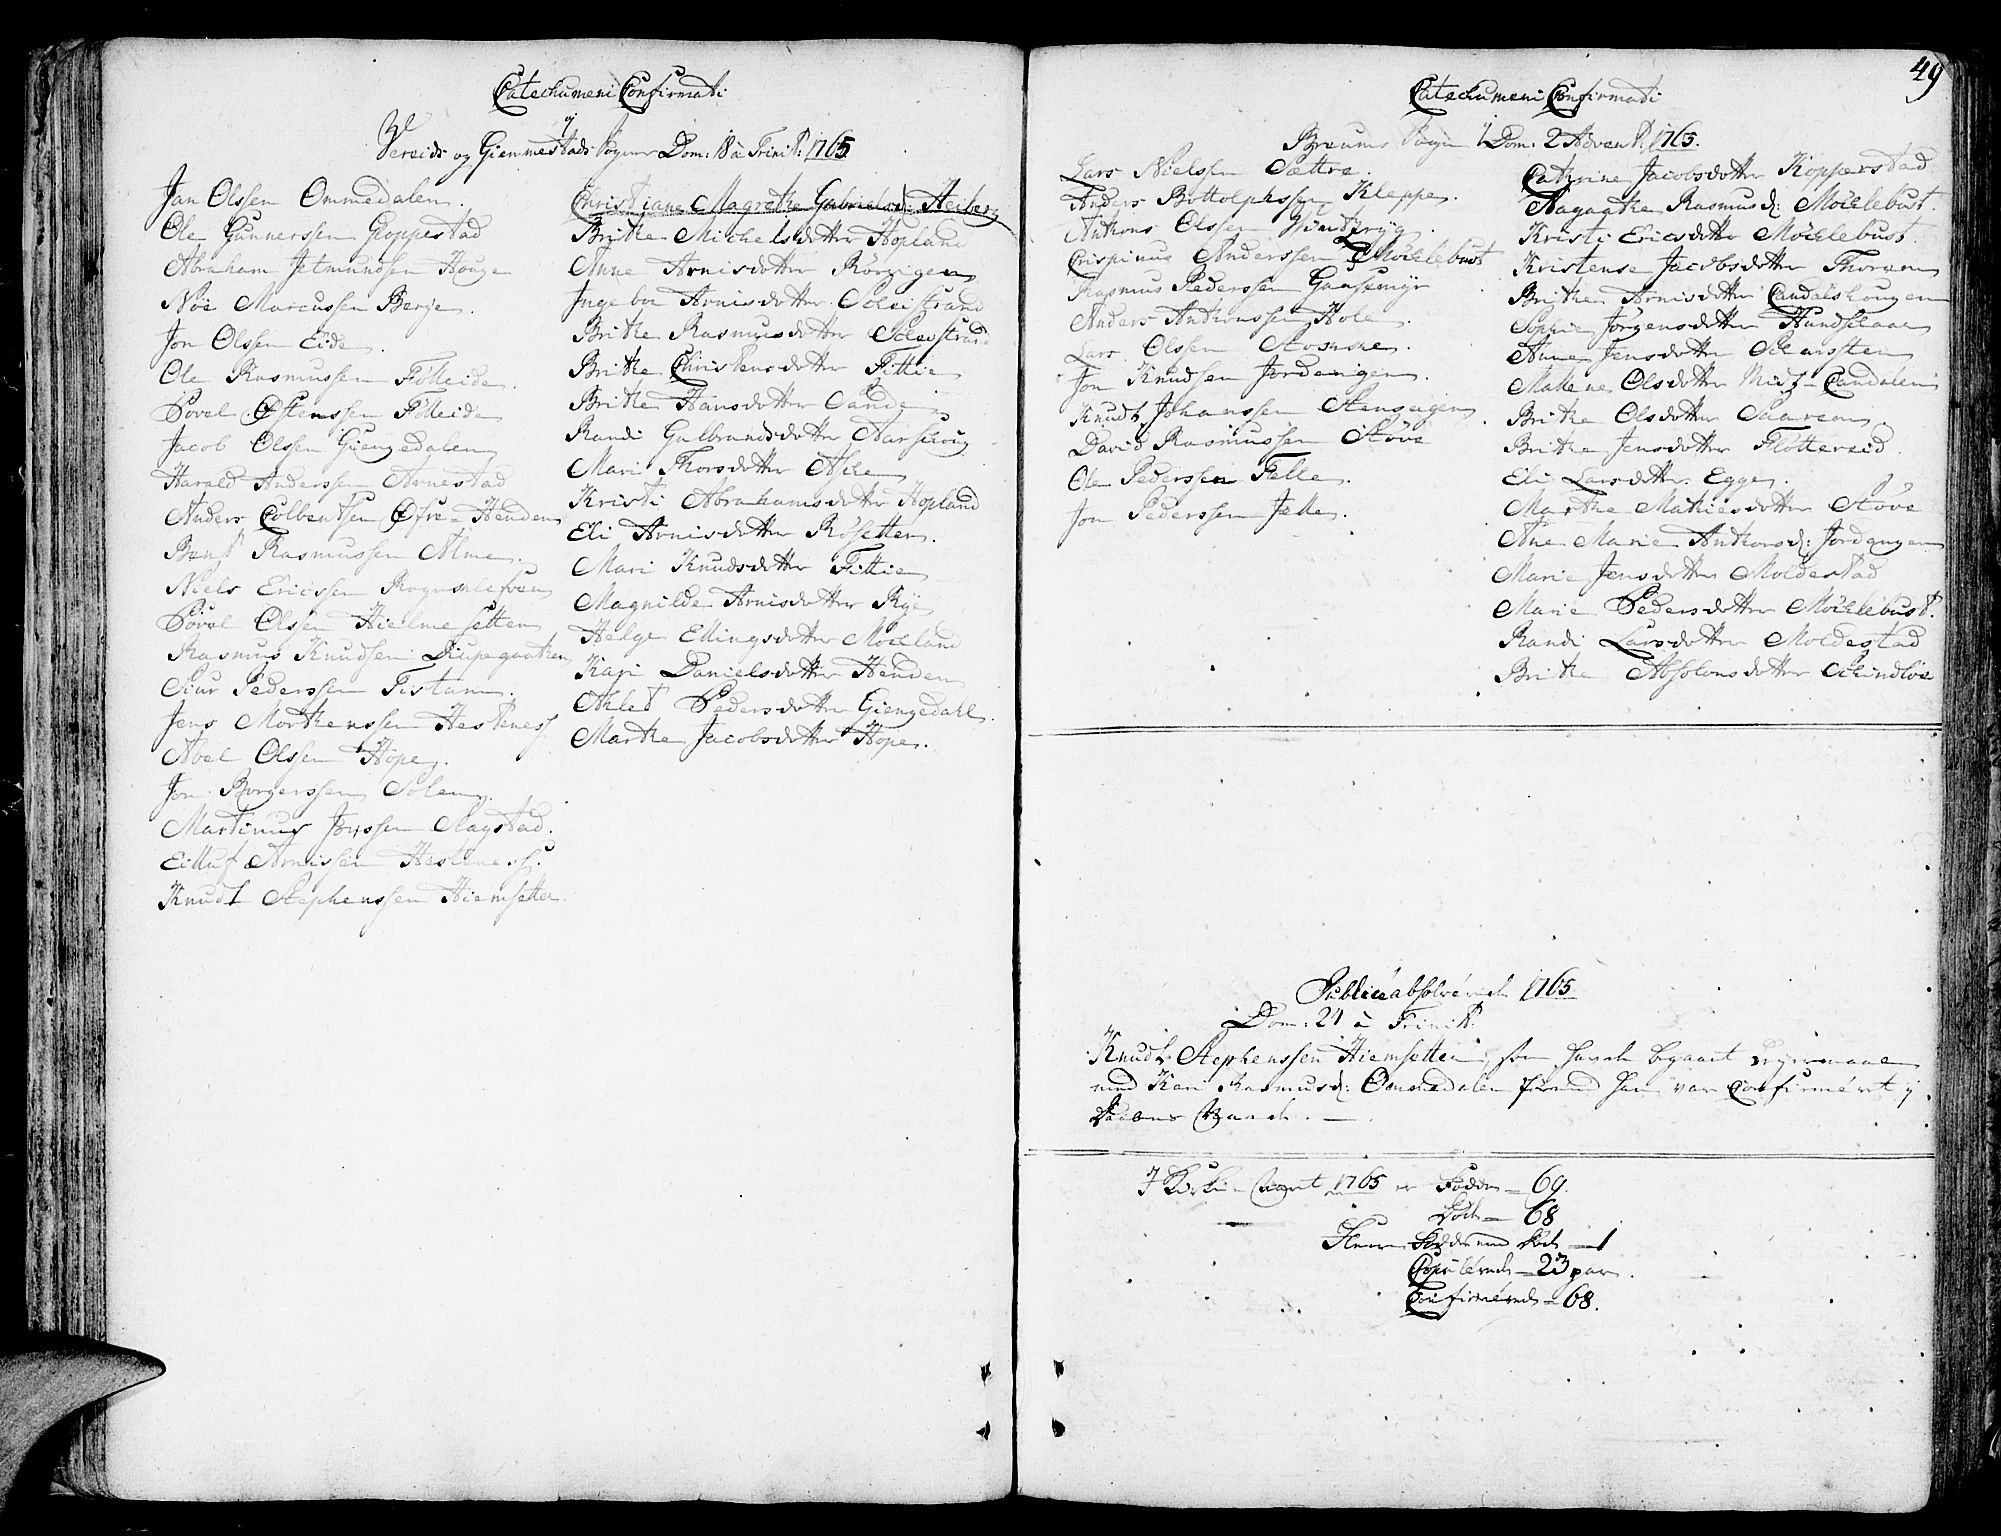 Catechumeni Confirmati
y
Vereids og Giemmestads Sogner Dom: 18 à Trinit: 1765
Jan Olssen Ommedalen.
Ole Gunnerssen Gloppestad
Abraham Jetmundsen Houge
Noe Marcussen Berge.
Jon Olssen Eide.
Ole Rasmussen Fölleide.
Povel Østenssen Fölleide
Jacob Olssen Giengedalen
Harald Anderssen Arnestad
Anders Colbentsen Øfre-Henden
Bent Rasmussen Alme.
Niels Ericssen
Povel Olsen Hielmesetten
Rasmus Knudsen
Siur Pederssen Tistam.
Jens Morthenssen Hesteness
Abel Olssen Hope.
Jon Borgerssen Solem.
Martinus Jonssen Ragstad.
Eilluf Arnissen Hesteness.
Knudt Stephenssen Hiemsetten.
Christiane Magrethe Gabrielsd: Heiberg
Brithe Michelsdotter Hopland
Anne Arnisdotter
Ingebor Arnisdotter Scleistrand
Brithe Rasmusdotter Scleistrand
Brithe Christensdotter Fittie
Brithe Hansdotter Sande
Randi Gulbrandsdotter Aarskoug
Mari Thorsdotter Aske
Kristi Abrahamsdotter Hopland
Eli Arnisdotter Rösetten.
Mari Knudsdotter Fittie
Magnilde Arnisdotter Rye
Helge Ellingsdotter Moeland
Kari Danielsdotter Henden
Ahlet Pedersdotter Giengedahl.
Marthe Jacobsdotter Hope.
49
Catechumeni Confirmati
Breums Sogn y Dom: 2 Advent: 1765.
Lars Nielssen Sættre.
Anders Bottolphssen Kleppe.
Anthons Olssen
Crispinus Anderssen Möcklebust
Rasmus Pederssen Gaasemyr
Anders Anthonssen Hole.
Lars Olssen Stomme.
Jon Knudsen Jordanger.
Knudt Johanssen
David Rasmussen Støve
Ole Pederssen Felle.
Jon Pederssen Felle.
Cathrine Jacobsdotter Kopperstad
Aagaathe Rasmusd: Möcklebust.
Kristi Ericsdotter Möcklebust.
Kristense Jacobsdotter
Brithe Arnisdotter
Sophie Jörgensdotter Hundskaar
Anne Jensdotter Skarsten
Malene Olsdotter Midt-Candalen
Brithe Olsdotter
Brithe Jensdotter Flottereid.
Eli Larsdotter Egge.
Marthe Mathiesdotter Støve
Ane Marie Anthonsd: Jordanger
Marie Jensdotter Moldestad
Marie Pedersdotter Möcklebust.
Randi Larsdotter Moldestad
Brithe Absolonsdotter Skindlöe
Publice absolverede 1765
Dom: 24 à Trinit:
Knudt Stephenssen Hiemsetten, som havde begaaet
med Kari Rasmusd: Ommedalen förend han var Confirmeret y
Daabens Pagt.
I Kirke-Aaret 1765 er Födde - 69.
Döde - 68
Födde med Död - 1
Copulerede - 23 par.
Confirmerede - 68.